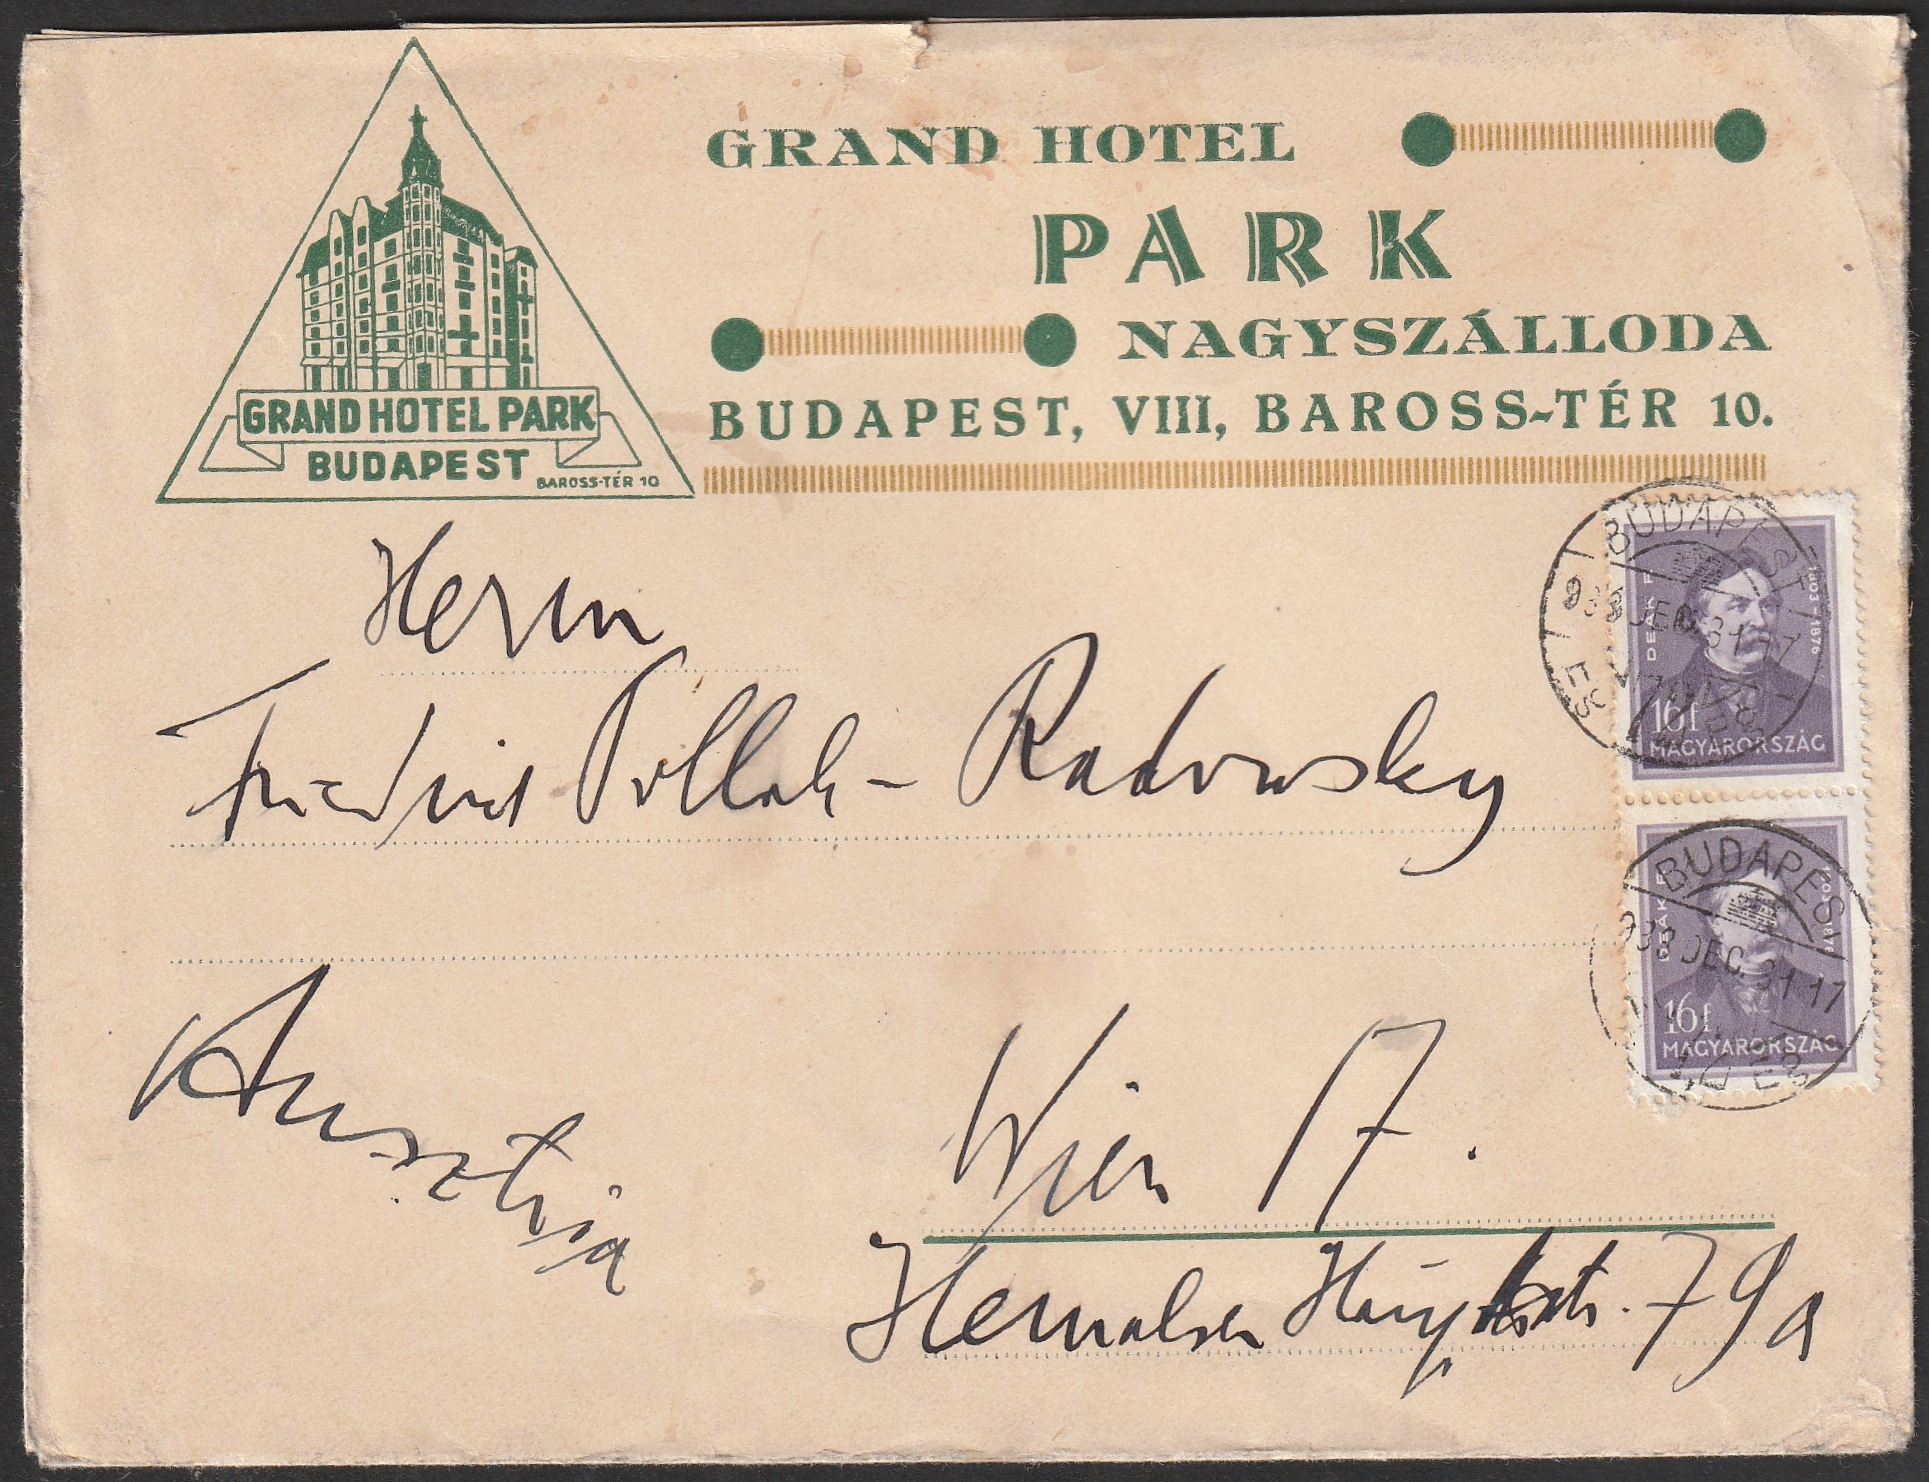 GRAND HOTEL
PARK
NAGYSZÁLLODA
BUDAPEST, VIII, BAROSS-TÉR 10.
GRAND HOTEL PARK
BUDAPEST
BAROSS-TÉR 10
BUDAPEST
933 DEC. 31 17
DEÁK F. 1803-1876
16 f
MAGYARORSZÁG
BUDAPEST
933 DEC. 31 17
DEÁK F. 1803-1876
16 f
MAGYARORSZÁG
Herrn
Friedrich Pollak - Radowsky
Ausztria
Wien 17.
Hernalser Hauptstr. 79a